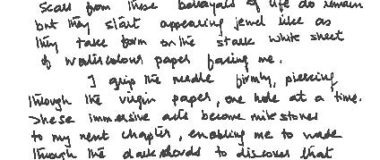 scars from these betrayals of life do remain
but they start appearing jewel like as
they take form on the stark white sheet
of watercolour paper facing me.
I grip the needle firmly, piercing
through the virgin paper, one hole at a time.
These immersive acts become milestones
to my next chapter, enabling me to wade
through the dark clouds to discover that